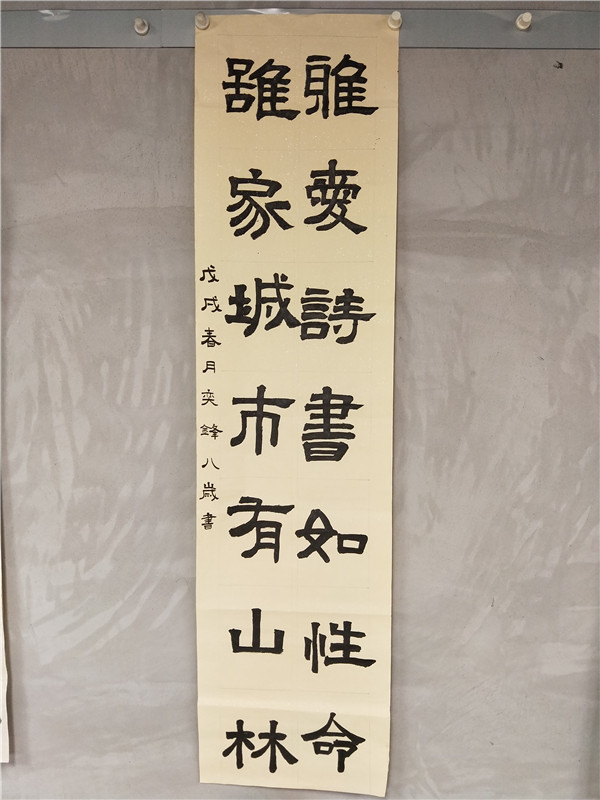 雅愛詩書如性命
雖家城市有山林
戊戌春月奕鋒八歲書